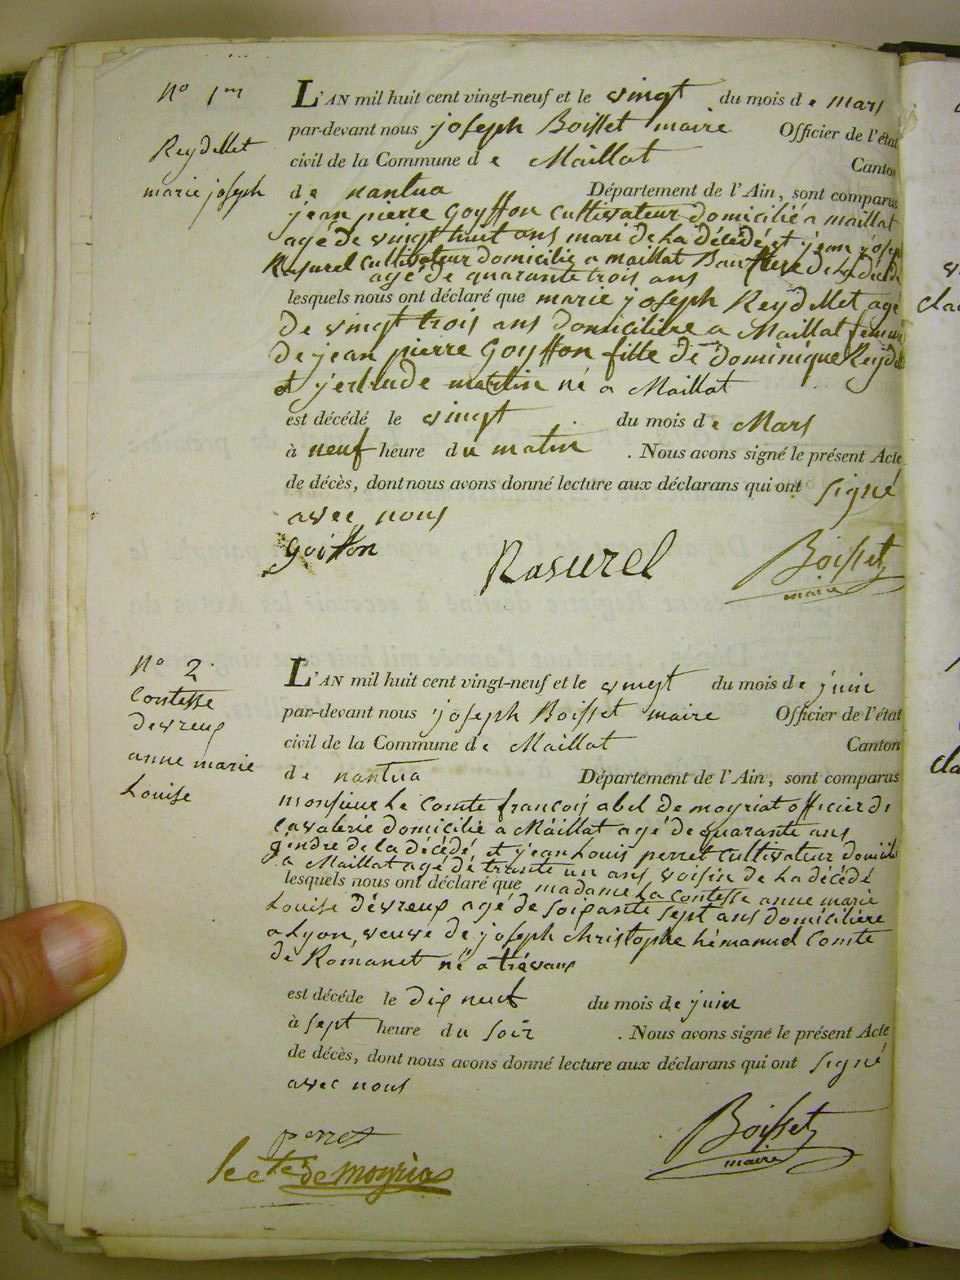 N° 1er
Reydellet
marie joseph
L'AN mil huit cent vingt-neuf et le vingt du mois de mars
par-devant nous joseph Boisset maire Officier de l'état
civil de la Commune de Maillat Canton
de nantua Département de l'Ain, sont comparus
jean pierre Goyffon cultivateur domicilié a maillat
agé de vingt huit ans mari de la décédé et jean joseph
Rasurel cultivateur domicilie a maillat de la
agé de quarante trois ans
lesquels nous ont déclaré que marie joseph Reydellet agé
de vingt trois ans domicilière a Maillat femme
de jean pierre Goyffon fille de dominique Reyde
et jertrude martin né a Maillat
est décédé le vingt du mois de Mars
à neuf heure du matin . Nous avons signé le présent Acte
de décès, dont nous avons donné lecture aux déclarans qui ont signé
avec nous
Goiffon Rasurel Boisset
maire
N° 2.
Contesse
devreux
anne marie
Louise
L'AN mil huit cent vingt-neuf et le vingt du mois de juin
par-devant nous joseph Boisset maire Officier de l'état
civil de la Commune de Maillat Canton
de nantua Département de l'Ain, sont comparus
monsieur Le Comte françois abel de moyriat officier de
Cavalerie domicilié a Maillat agé de quarante ans
gendre de la décédé et jean Louis perret cultivateur domicilié
a Maillat agé de trante un ans voisin de la décédé
lesquels nous ont déclaré que madame la Contesse anne marie
Louise dévreux agé de soixante sept ans domicilière
a Lyon, veuve de joseph christophe hémanuel Comte
de Romanet né a trévoux
est décédé le dix neuf du mois de juin
à sept heure du soir . Nous avons signé le présent Acte
de décès, dont nous avons donné lecture aux déclarans qui ont signé
avec nous
perret Boisset
maire
le cte de moyria